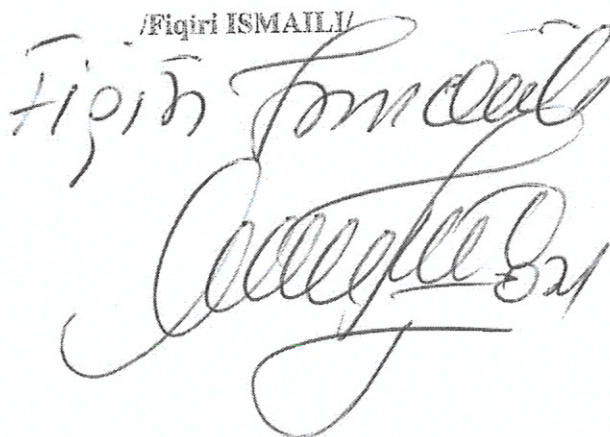 /Fiqiri ISMAILI/
Fiqiri Ismaili